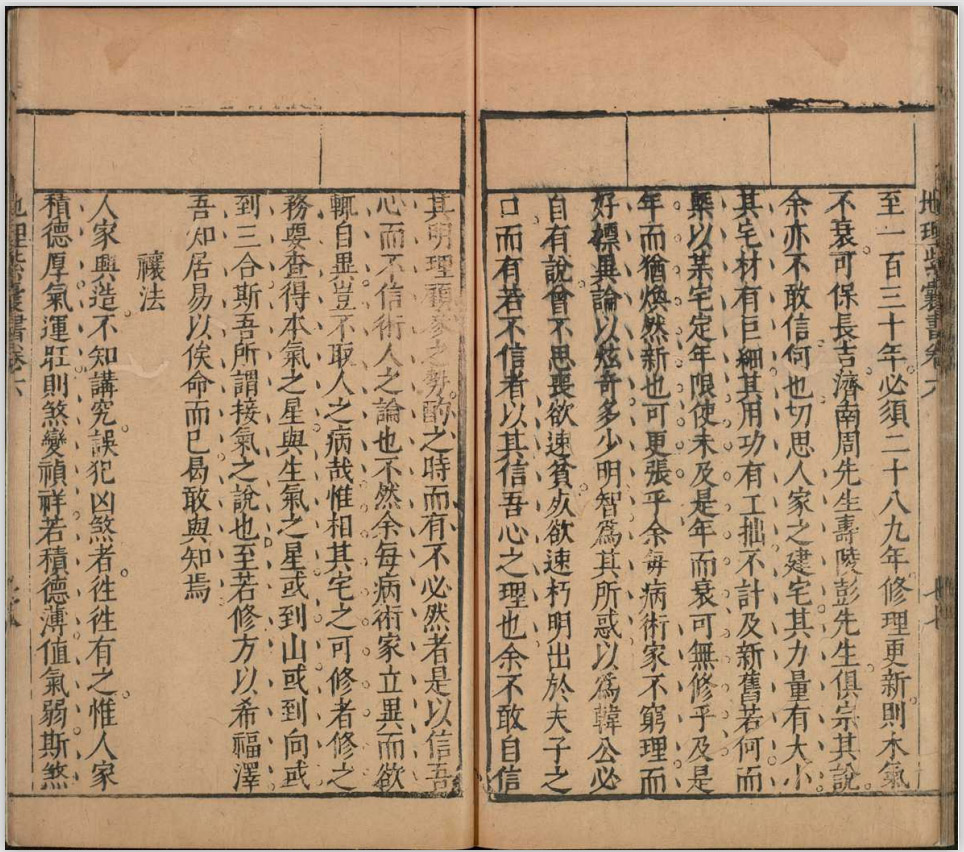 地理紫囊書卷六
至一百三十年必須二十八九年修理更新則木氣
不衰可保長吉濟南周先生壽陵彭先生俱宗其說
余亦不敢信何也切思人家之建宅其力量有大小
其宅材有巨細其用功有工拙不計及新舊若何而
槩以某宅定年限使未及是年而衰可無修乎及是
年而猶煥然新也可更張乎余每病術家不窮理而
好標異論以炫奇多少明智爲其所惑以爲韓公必
自有說曾不思喪欲速貧死欲速朽明出於夫子之
口而有若不信者以其信吾心之理也余不敢自信
其明理頋家之勢酌之時而有不必然者是以信吾
心而不信術人之論也不然余每病術家立異而欲
輒自異豈不取人之病哉惟相其宅之可修者修之
務要查得本氣之星與生氣之星或到山或到向或
到三合斯吾所謂接氣之說也至若修方以希福澤
吾知居易以俟命而已曷敢與知焉
禳法
人家興造不知講究誤犯凶煞者徃徃有之惟人家
積德厚氣運旺則煞變禎祥若積德薄值氣弱斯煞
地理紫囊書卷六